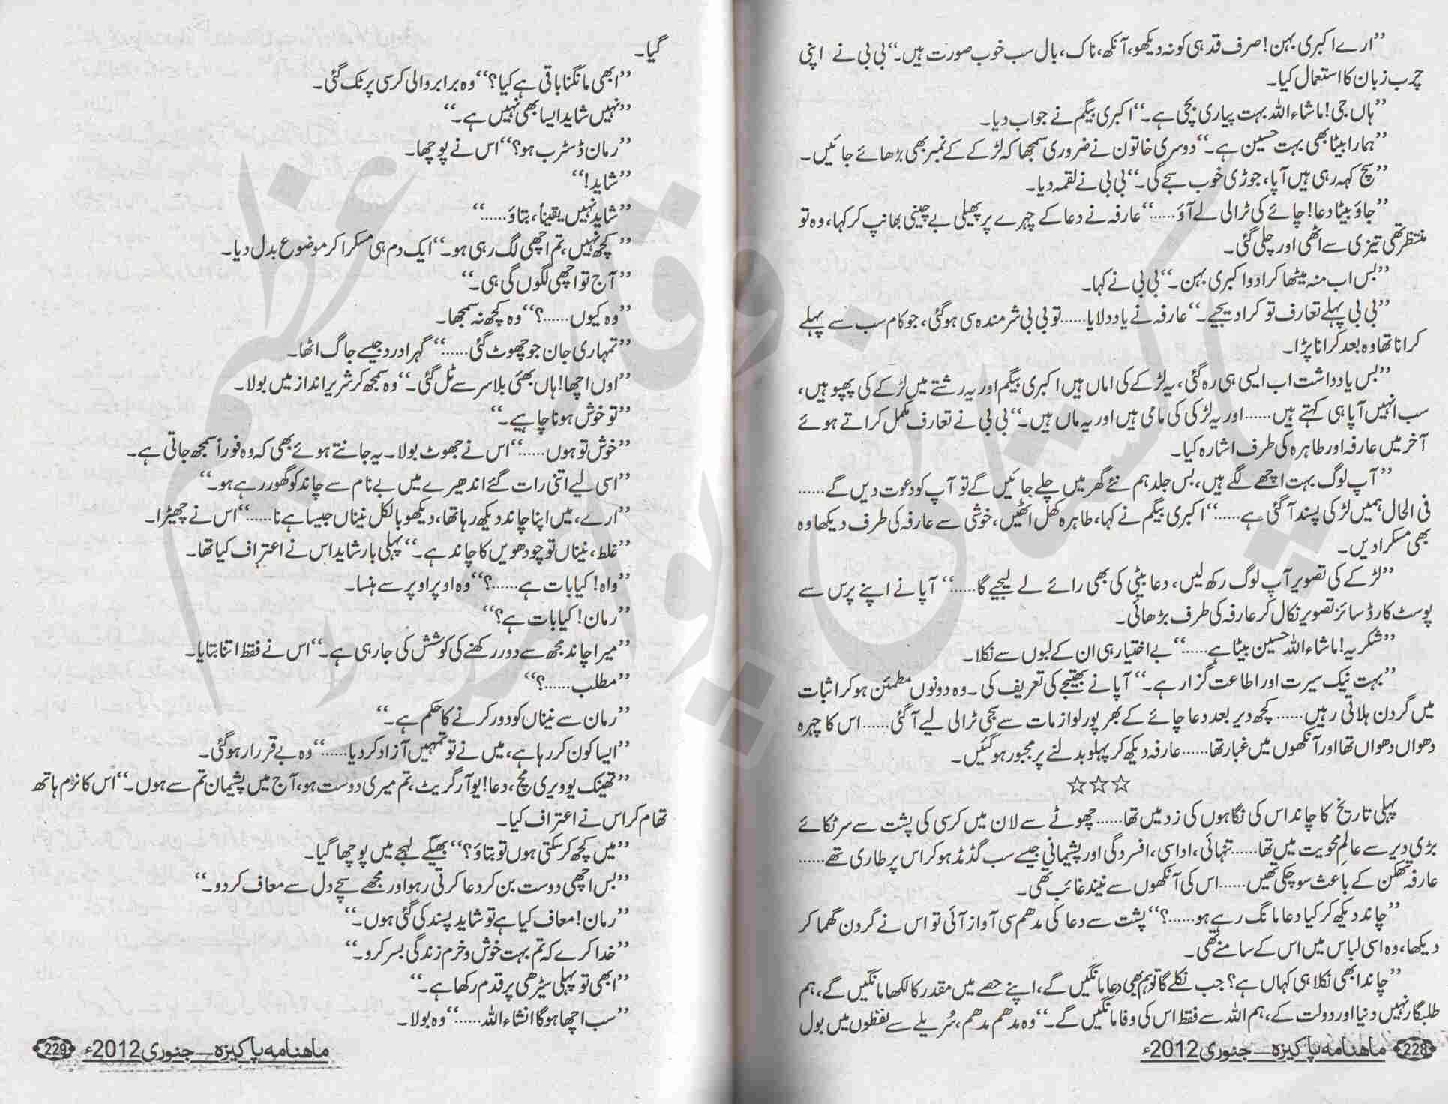 ”ارے اکبری بہن! صرف قد ہی کو نہ دیکھو، آنکھ، ناک، بال سب خوب صورت ہیں۔“ بی بی نے اپنی
چرب زبان کا استعمال کیا۔
”ہاں جی! ماشاء اللہ بہت پیاری بچی ہے۔“ اکبری بیگم نے جواب دیا۔
”ہمارا بیٹا بھی بہت حسین ہے۔“ دوسری خاتون نے ضروری سمجھا کہ لڑکے کے نمبر بھی بڑھائے جائیں۔
”سچ کہہ رہی ہیں آپا، جوڑی خوب سجے گی۔“ بی بی نے لقمہ دیا۔
”جاؤ بیٹا دعا! چائے کی ٹرالی لے آؤ......“ عارفہ نے دعا کے چہرے پر پھیلی بے چینی بھانپ کر کہا، وہ تو
منتظر تھی تیزی سے اٹھی اور چلی گئی۔
”بس اب منہ میٹھا کرا دو اکبری بہن۔“ بی بی نے کہا۔
”بی بی پہلے تعارف تو کرا دیجیے۔“ عارفہ نے یاد دلایا...... تو بی بی شرمندہ سی ہو گئی، جو کام سب سے پہلے
کرانا تھا وہ بعد کرانا پڑا۔
”بس یادداشت اب ایسی ہی رہ گئی، یہ لڑکے کی اماں ہیں اکبری بیگم اور یہ رشتے میں لڑکے کی پھپو ہیں،
سب انہیں آپا ہی کہتے ہیں...... اور یہ لڑکی کی مامی ہیں اور یہ ماں ہیں۔“ بی بی نے تعارف مکمل کراتے ہوئے
آخر میں عارفہ اور طاہرہ کی طرف اشارہ کیا۔
”آپ لوگ بہت اچھے لگے ہیں، بس جلد ہم نئے گھر میں چلے جائیں گے تو آپ کو دعوت دیں گے......
فی الحال ہمیں لڑکی پسند آ گئی ہے......“ اکبری بیگم نے کہا، طاہرہ کھل اٹھیں، خوشی سے عارفہ کی طرف دیکھا وہ
بھی مسکرا دیں۔
”لڑکے کی تصویر آپ لوگ رکھ لیں، دعا بیٹی کی بھی رائے لے لیجیے گا......“ آپا نے اپنے پرس سے
پوسٹ کارڈ سائز تصویر نکال کر عارفہ کی طرف بڑھائی۔
”شکریہ! ماشاء اللہ حسین بیٹا ہے......“ بے اختیار ہی ان کے لبوں سے نکلا۔
”بہت نیک سیرت اور اطاعت گزار ہے۔“ آپا نے بھتیجے کی تعریف کی۔ وہ دونوں مطمئن ہو کر اثبات
میں گردن ہلاتی رہیں...... کچھ دیر بعد دعا چائے کے بھرپور لوازمات سے سجی ٹرالی لیے آ گئی...... اس کا چہرہ
دھواں دھواں تھا اور آنکھوں میں غبار تھا...... عارفہ دیکھ کر پہلو بدلنے پر مجبور ہو گئیں۔
☆☆☆
پہلی تاریخ کا چاند اس کی نگاہوں کی زد میں تھا...... چھوٹے سے لان میں کرسی کی پشت سے سر ٹکائے
بڑی دیر سے عالم محویت میں تھا...... تنہائی، اداسی، افسردگی اور پشیمانی جیسے سب گڈمڈ ہو کر اس پر طاری تھے......
عارفہ تھکن کے باعث سو چکی تھیں...... اس کی آنکھوں سے نیند غائب تھی۔
”چاند دیکھ کر کیا دعا مانگ رہے ہو......؟“ پشت سے دعا کی مدھم سی آواز آئی تو اس نے گردن گھما کر
دیکھا، وہ اسی لباس میں اس کے سامنے تھی۔
”چاند ابھی نکلا ہی کہاں ہے؟ جب نکلے گا تو ہم بھی دعا مانگیں گے، اپنے حصے میں مقدر کا لکھا مانگیں گے، ہم
طلبگار نہیں دنیا اور دولت کے، ہم اللہ سے فقط اس کی وفا مانگیں گے۔“ وہ مدھم مدھم، سُریلے سے لفظوں میں بول
228 ماہنامہ پاکیزہ۔۔۔ جنوری 2012ء
گیا۔
”ابھی مانگنا باقی ہے کیا؟“ وہ برابر والی کرسی پر ٹک گئی۔
”نہیں شاید ایسا بھی نہیں ہے۔“
”رمان ڈسٹرب ہو؟“ اس نے پوچھا۔
”شاید!“
”شاید نہیں، یقیناً، بتاؤ......“
”کچھ نہیں، تم اچھی لگ رہی ہو۔“ ایک دم ہی مسکرا کر موضوع بدل دیا۔
”آج تو اچھی لگوں گی ہی۔“
”وہ کیوں......؟“ وہ کچھ نہ سمجھا۔
”تمہاری جان جو چھوٹ گئی......“ گہرا درد جیسے جاگ اٹھا۔
”اوں اچھا! ہاں بھئی بلا سر سے ٹل گئی۔“ وہ سمجھ کر شریر انداز میں بولا۔
”تو خوش ہونا چاہیے۔“
”خوش تو ہوں......“ اس نے جھوٹ بولا۔ یہ جانتے ہوئے بھی کہ وہ فوراً سمجھ جاتی ہے۔
”اسی لیے اتنی رات گئے اندھیرے میں بے نام سے چاند کو گھور رہے ہو۔“
”ارے، میں اپنا چاند دیکھ رہا تھا، دیکھو بالکل نیناں جیسا ہے نا......“ اس نے چھیڑا۔
”غلط، نیناں تو چودھویں کا چاند ہے۔“ پہلی بار شاید اس نے اعتراف کیا تھا۔
”واہ! کیا بات ہے......؟“ وہ اوپر اوپر سے ہنسا۔
”رمان! کیا بات ہے؟“
”میرا چاند مجھ سے دور رکھنے کی کوشش کی جا رہی ہے۔“ اس نے فقط اتنا بتایا۔
”مطلب......؟“
”رمان سے نیناں کو دور کرنے کا حکم ہے۔“
”ایسا کون کر رہا ہے، میں نے تو تمہیں آزاد کر دیا......“ وہ بے قرار ہو گئی۔
”تھینک یو ویری مچ، دعا! یو آر گریٹ، تم میری دوست ہو، آج میں پشیمان تم سے ہوں۔“ اس کا نرم ہاتھ
تھام کر اس نے اعتراف کیا۔
”میں کچھ کر سکتی ہوں تو بتاؤ؟“ بھیگے لہجے میں پوچھا گیا۔
”بس اچھی دوست بن کر دعا کرتی رہو اور مجھے سچے دل سے معاف کر دو۔“
”رمان! معاف کیا ہے تو شاید پسند کی گئی ہوں۔“
”خدا کرے کہ تم بہت خوش و خرم زندگی بسر کرو۔“
”ابھی تو پہلی سیڑھی پر قدم رکھا ہے۔“
”سب اچھا ہوگا انشاء اللہ......“ وہ بولا۔
ماہنامہ پاکیزہ۔۔۔ جنوری 2012ء 229